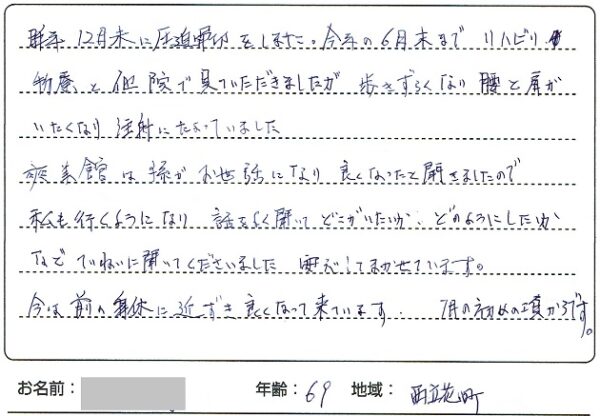 昨年12月末に圧迫骨折をしました。今年の6月末まで リハビリや
物療と他院で見ていただきましたが 歩きずらくなり 腰と肩が
いたくなり 注射にたよっていました
爽美館は孫がお世話になり 良くなったと聞きましたので
私も行くようになり 話をよく聞いて どこがいたいか、どのようにしたいか
など ていねいに聞いてくださいました 安心してまかせています。
今は前の身体に近ずき良くなって来ています。 7月の初めの頃からです。
お名前：
年齢：69 地域：西立花町